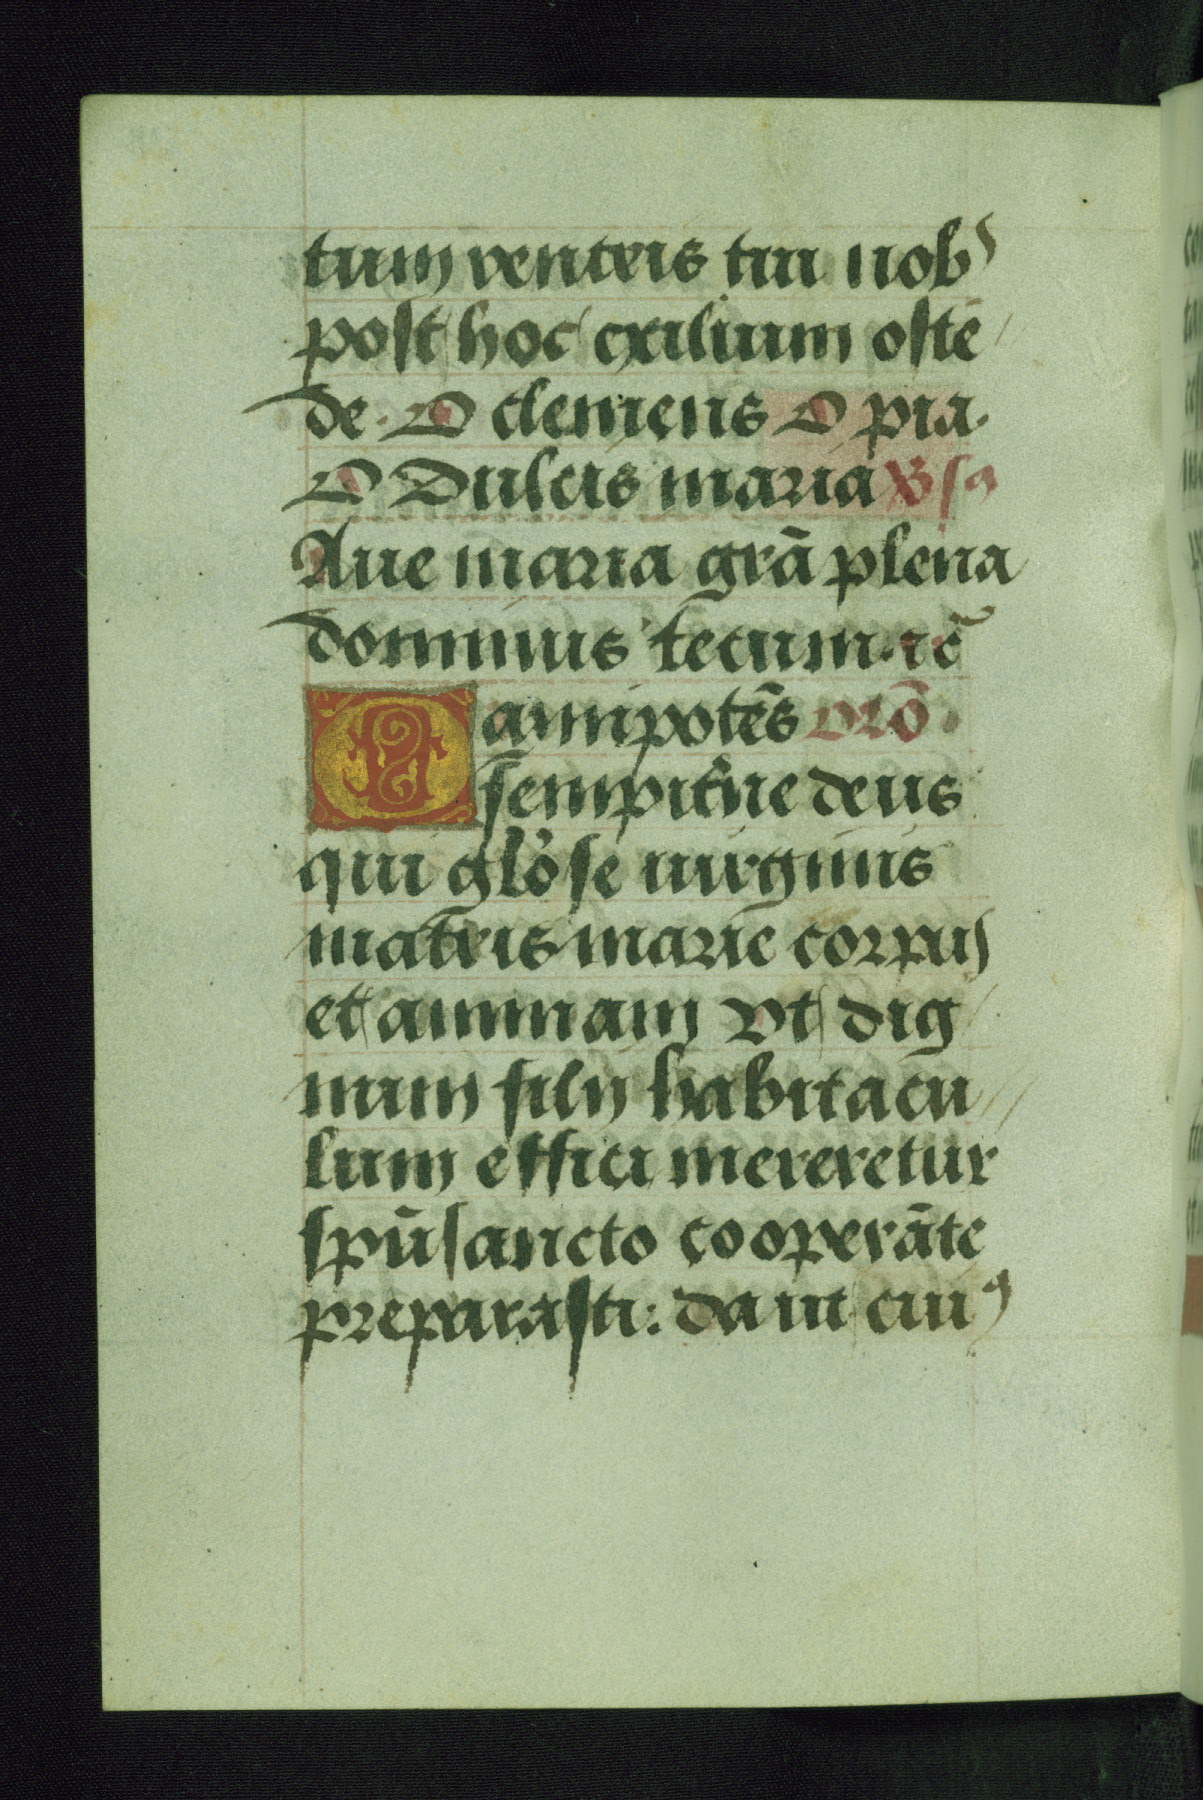 tum ventris tui nob᾽
post hoc exilium ostē
de. O clemens O pia.
O Dulcis maria
Aue maria grā plena
dominus tecum. ⁊c̄
O amipotēs orō.
sempit̾ne deus
qui glo᾽se uirginis
matris marie corpus
et animam vt dig
num filij habitacu
lum effici mereretur
spū sancto cooperāte
preparasti: da ut cuiꝰ